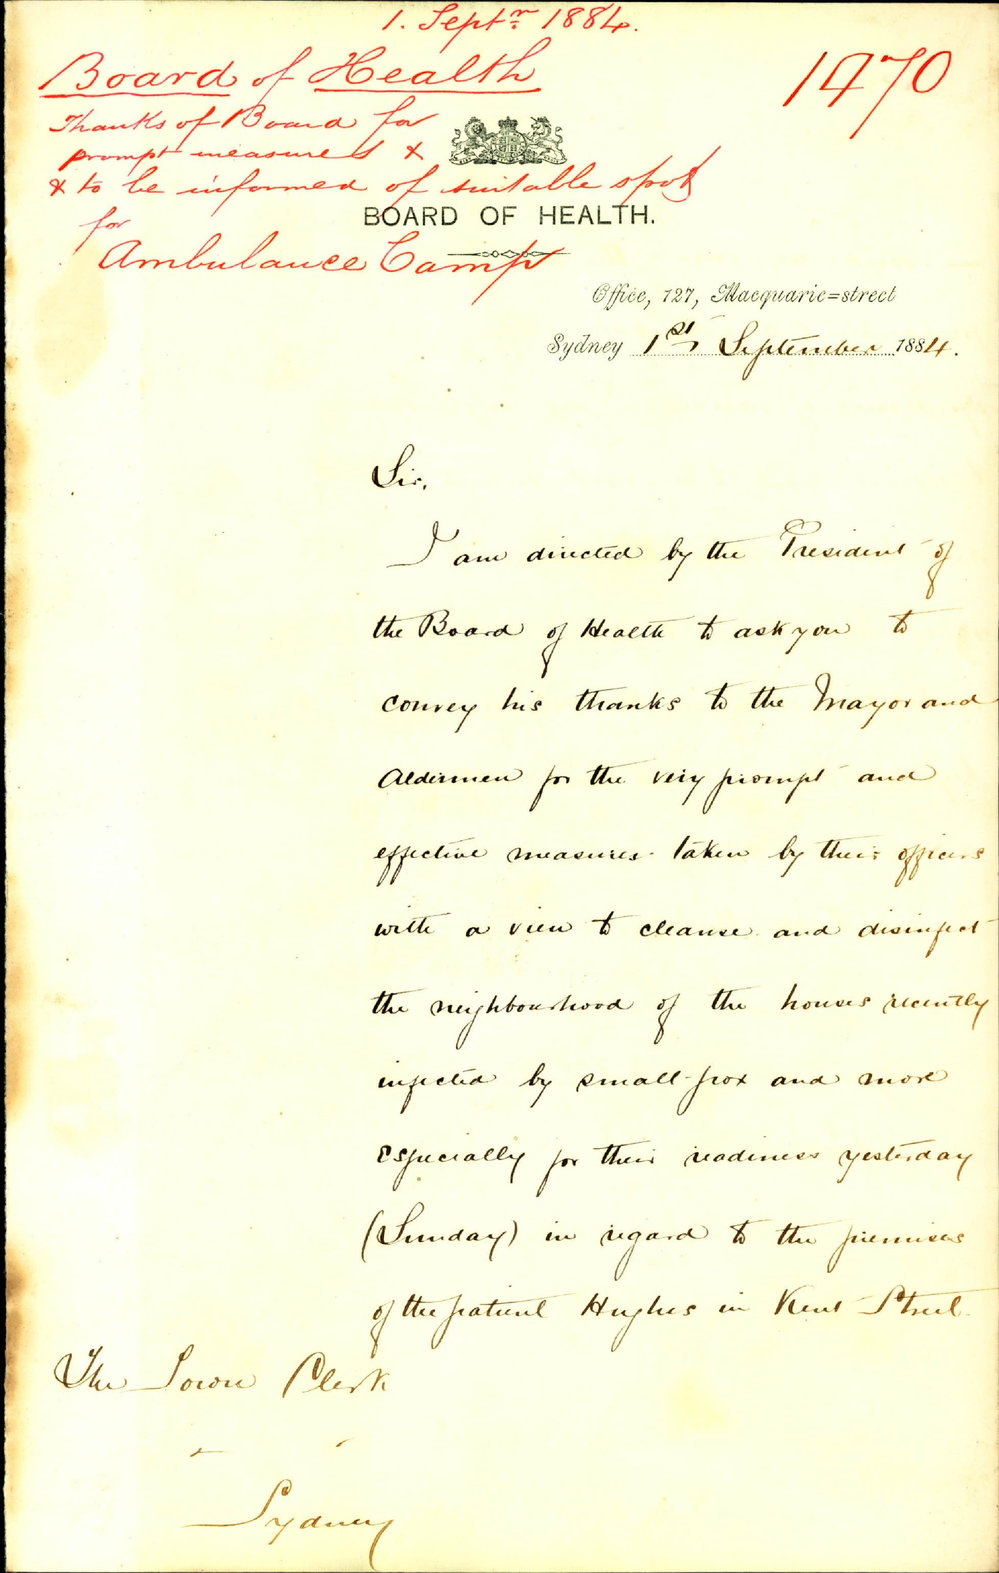 1. Septr 1884.
Board of Health
1470
Thanks of Board for
prompt measures &
& to be informed of suitable spot
for
Ambulance Camp
BOARD OF HEALTH.
Office, 127, Macquarie=street
Sydney 1st September 1884.
Sir,
I am directed by the President of
the Board of Health to ask you to
convey his thanks to the Mayor and
Aldermen for the very prompt and
effective measures taken by their officers
with a view to cleanse and disinfect
the neighbourhood of the houses recently
infected by small-pox and more
especially for their readiness yesterday
(Sunday) in regard to the premises
of the patient Hughes in Kent Street.
The Town Clerk
Sydney